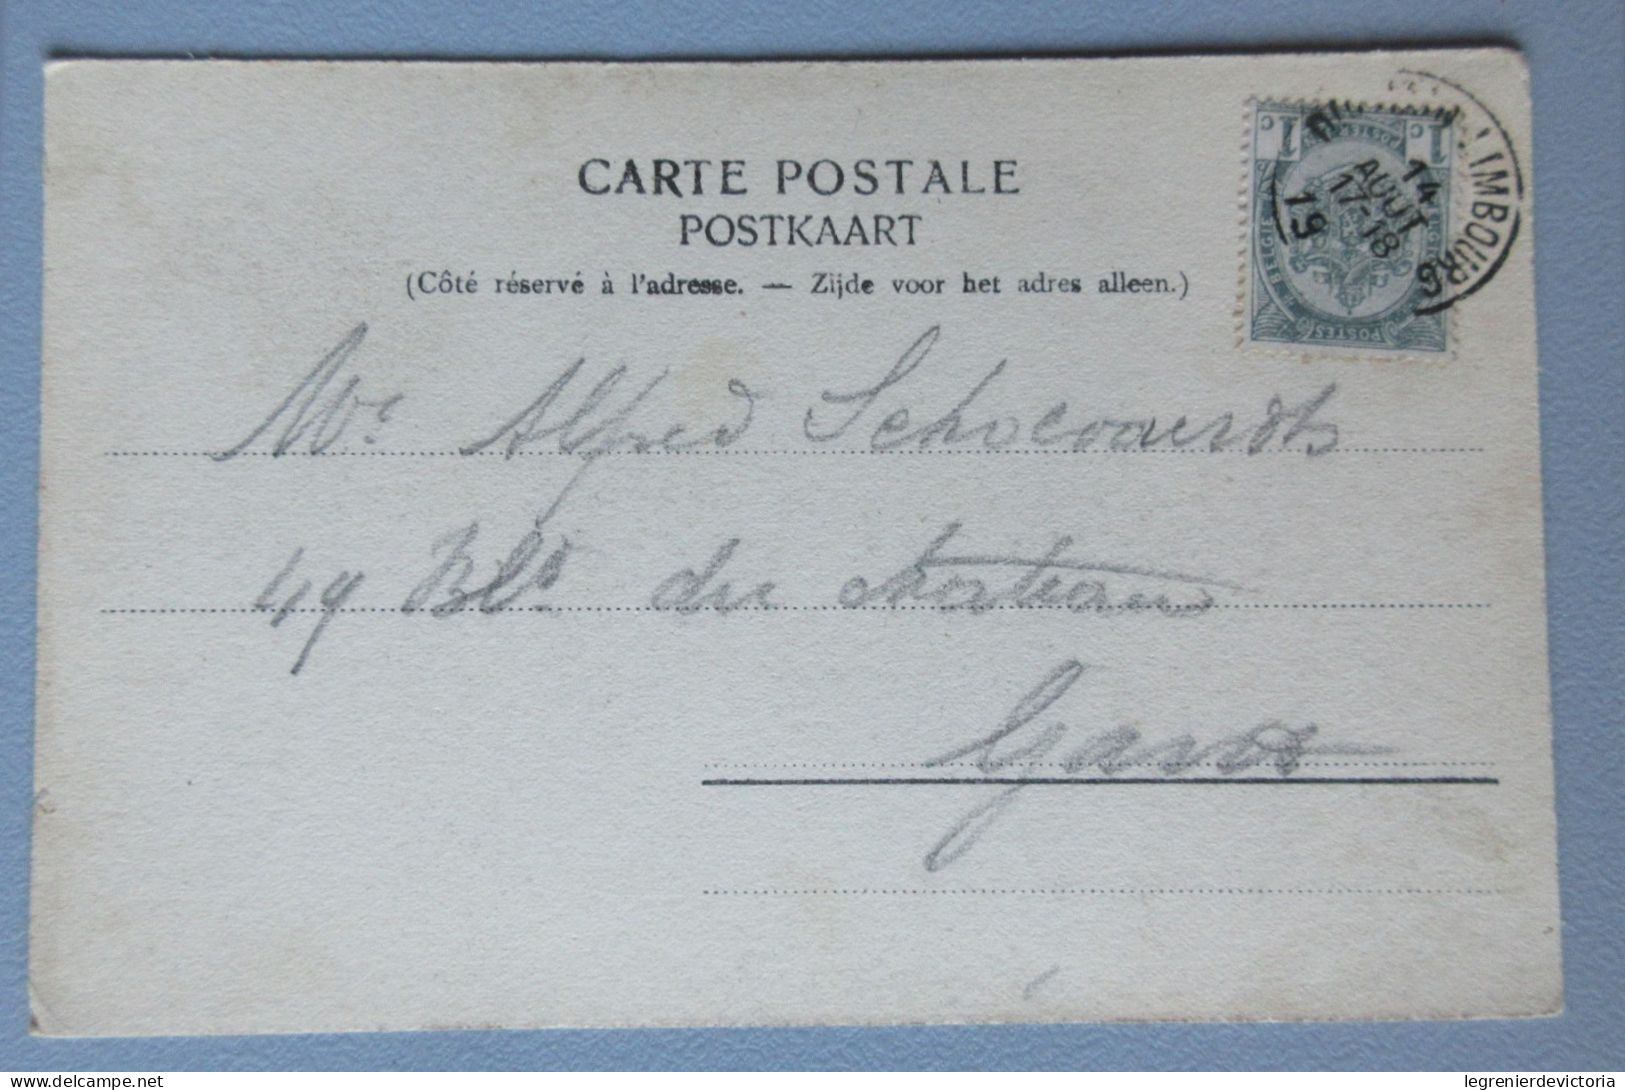 CARTE POSTALE
POSTKAART
(Côté réservé à l'adresse. — Zijde voor het adres alleen.)
1c 1c
POSTES
LIMBOURG
14
AOUT
17-18
19 6
Mr Alfred Schoevaerdts
49 Bld du chateau
Gand
delcampe.net
legrenierdevictoria